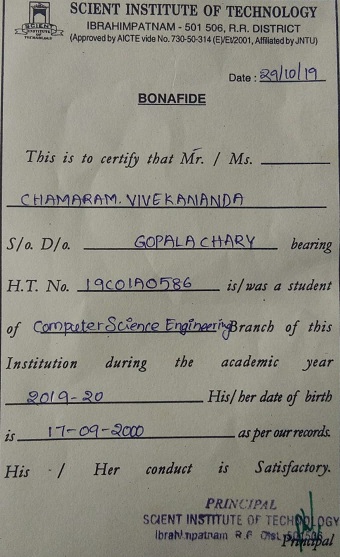 SCIENT INSTITUTE OF TECHNOLOGY
IBRAHIMPATNAM - 501 506, R.R. DISTRICT
(Approved by AICTE vide No. 730-50-314 (E)/EI/2001, Affiliated by JNTU)
Date : 29/10/19
BONAFIDE
This is to certify that Mr. / Ms.
CHAMARAM. VIVEKANANDA
S/o. D/o. GOPALA CHARY bearing
H.T. No. 19C01A0586 is/was a student
of Computer Science Engineering Branch of this
Institution during the academic year
2019-20 His/her date of birth
is 17-09-2000 as per our records.
His / Her conduct is Satisfactory.
PRINCIPAL
SCIENT INSTITUTE OF TECHNOLOGY
Ibrahimpatnam R.R. Dist
Principal